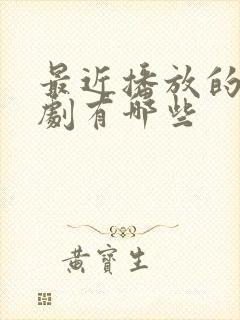 最近播放的
劇有哪些
黃寶生